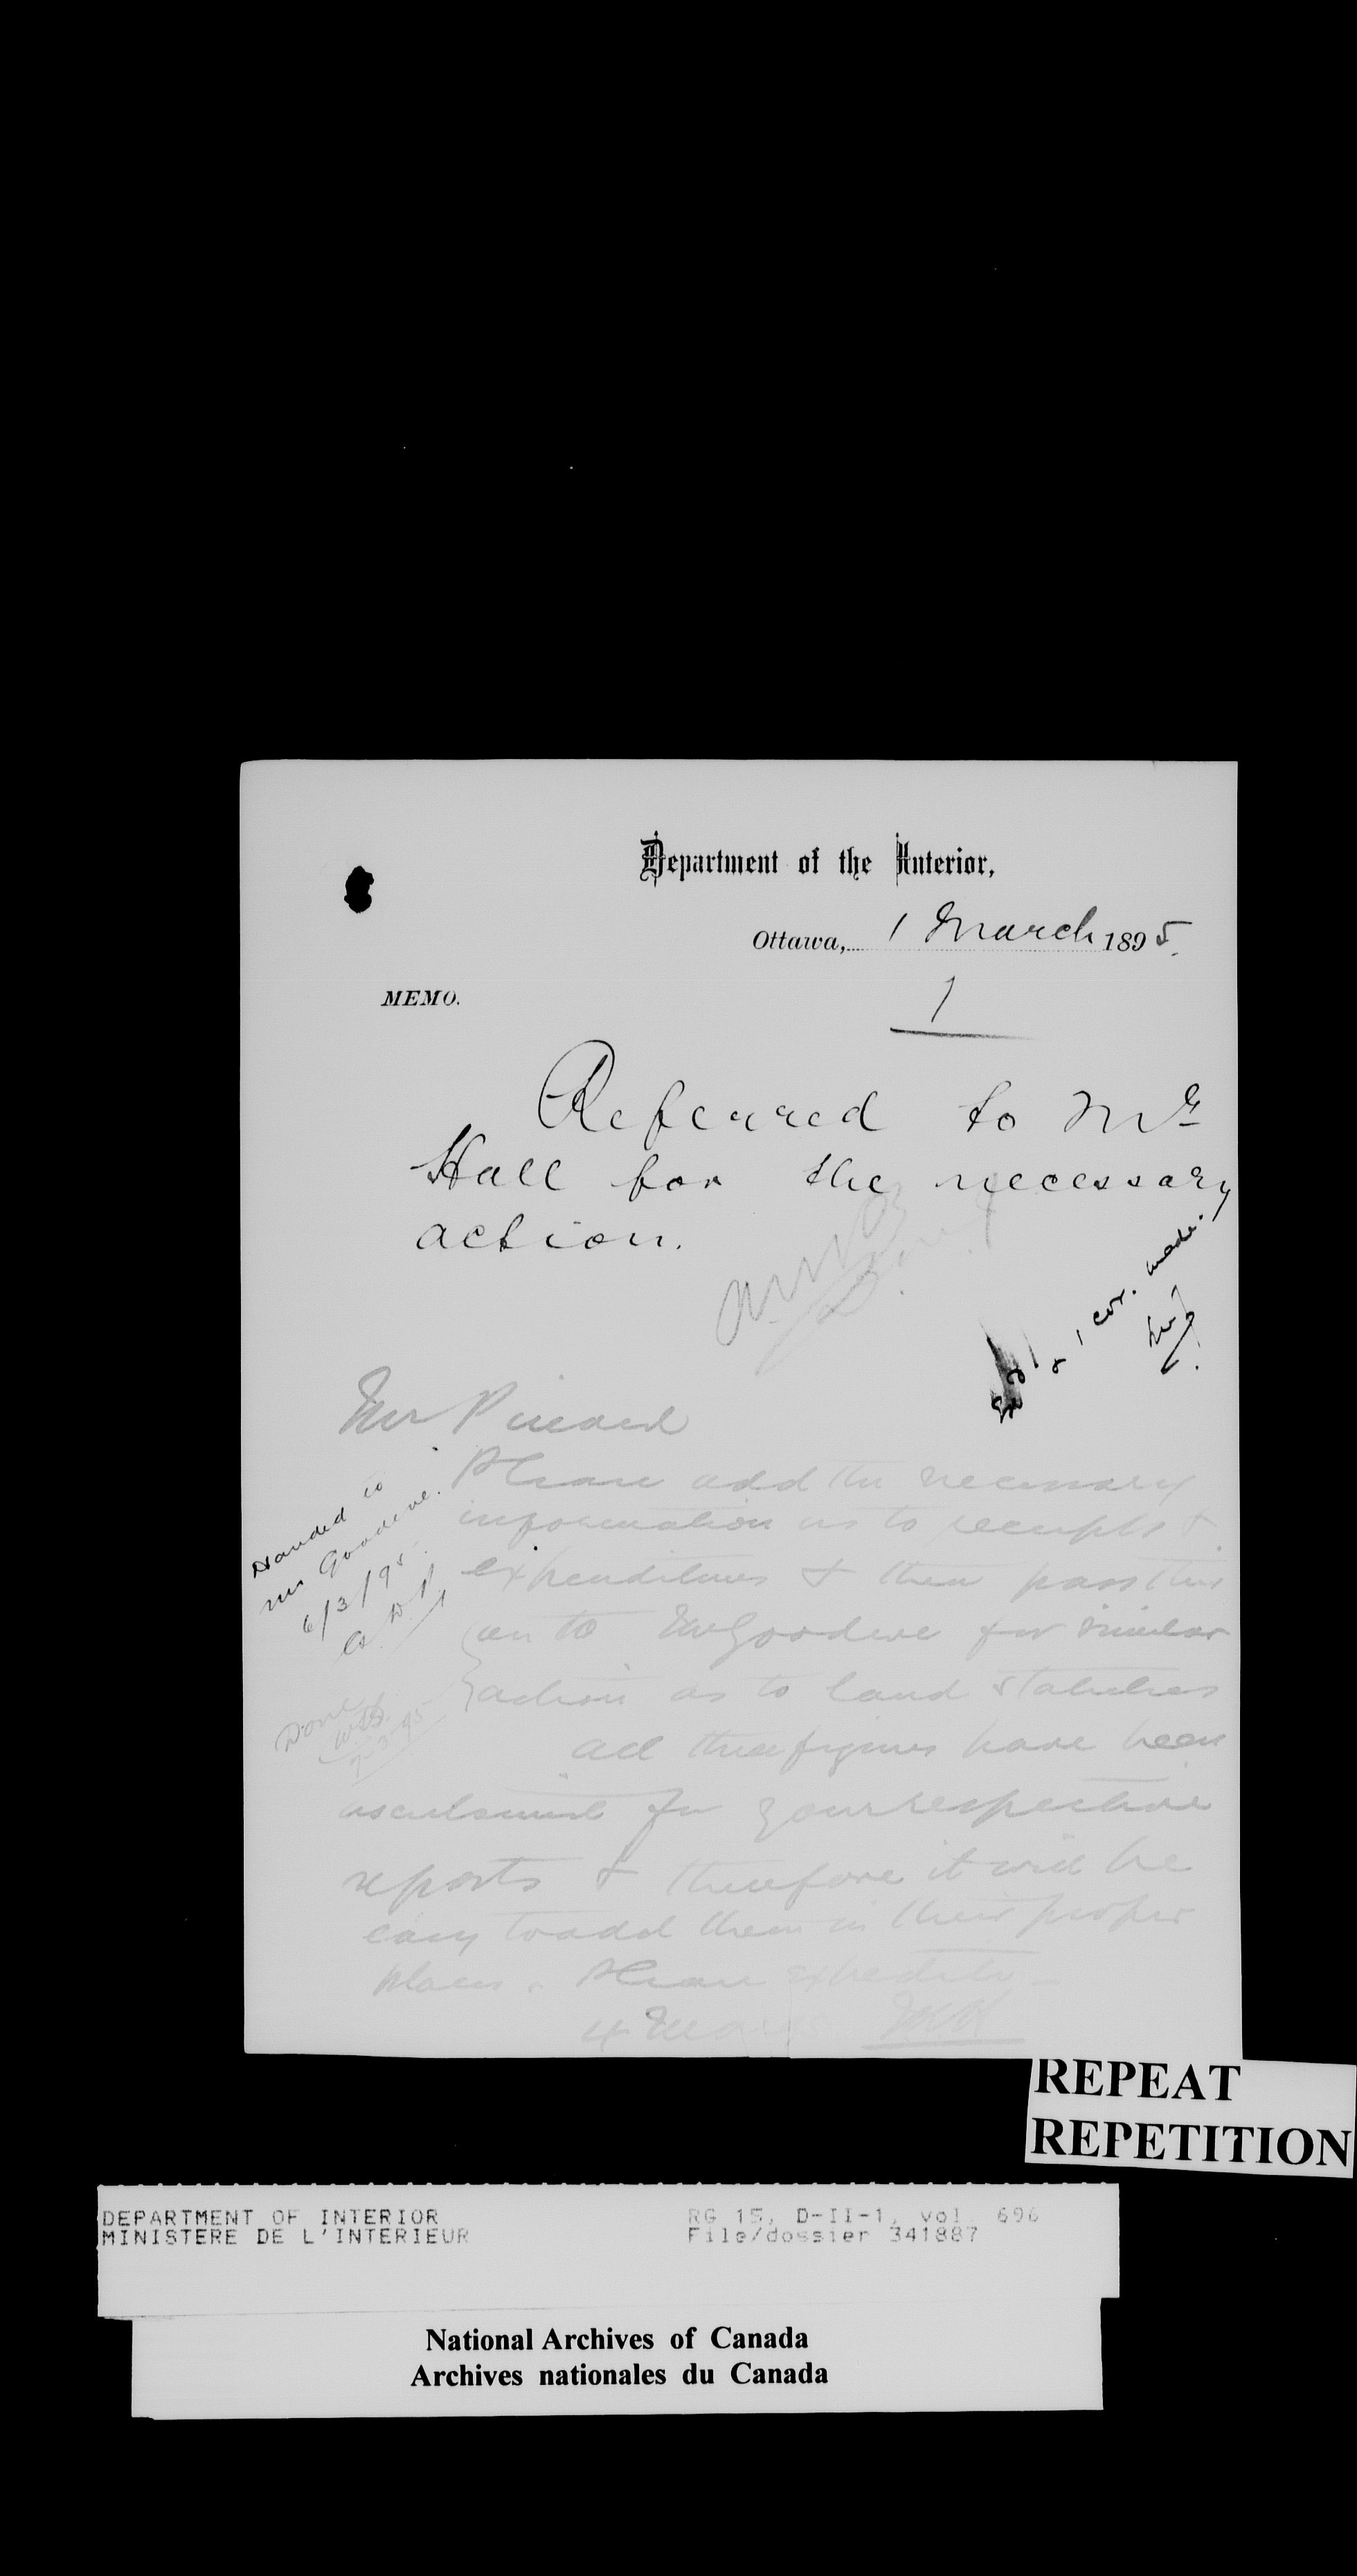 Department of the Interior,
Ottawa, 1 March 1895.
MEMO.
1
Referred to Mr
Hall for the necessary
action.
1 cor. made.
Mr Pinard
Please add the necessary
information as to receipts &
expenditures & then pass this
on to Mr Goodeve for similar
action as to land statistics
All these figures have been
ascertained for your respective
reports & therefore it will be
easy to add them in their proper
places. Please expedite
4 Mar
Handed to
Mr Goodeve.
6/3/95
Done
7-3-95
REPEAT
REPETITION
DEPARTMENT OF INTERIOR
MINISTERE DE L'INTERIEUR
RG 15, D-II-1, vol. 696
File/dossier 341887
National Archives of Canada
Archives nationales du Canada